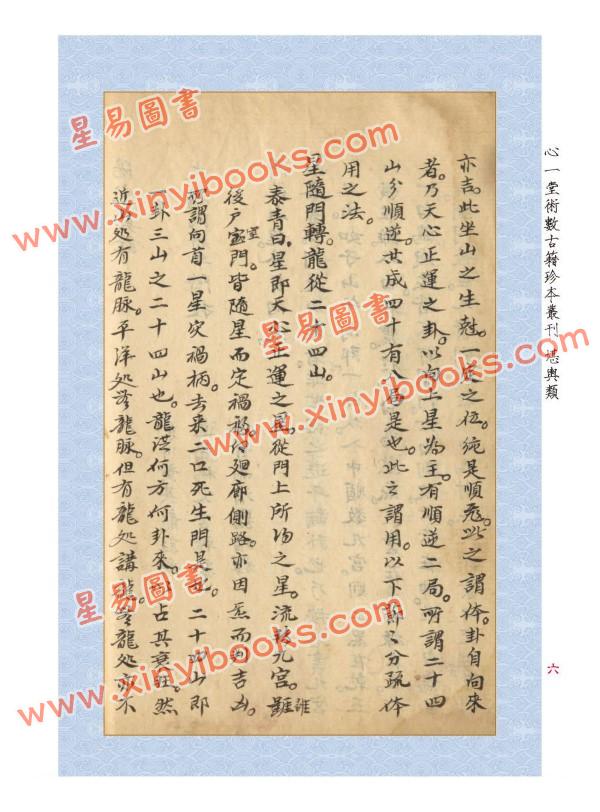 心一堂術數古籍珍本叢刊 堪輿類
六
亦吉。此坐山之生尅。之位。純是順。此之謂体。卦自向來
者。乃天心正運之卦。以向上星為主。有順逆二局。所謂二十四
山分順逆。共成四十有八局是也。此之謂用。以下詳分疏体
用之法。
星隨門轉。龍從二十四山。
泰青曰。星即天心正運之星。從門上所泊之星。流於九宮。雖
後户室門。皆隨星而定禍福。廻廊側路。亦因氣而判吉凶。
所謂向首一星灾禍柄。去來二口死生門是也。二十四山即
卦三山之二十四山也。龍從何方何卦來。占其衰旺。然
近山処有龍脉。平洋処無龍脉。但有龍処講龍。無龍処亦不
星易圖書
www.xinyibooks.com
星易圖書
www.xinyibooks.com
星易圖書
www.xinyibooks.com
星易圖書
www.xinyibooks.com